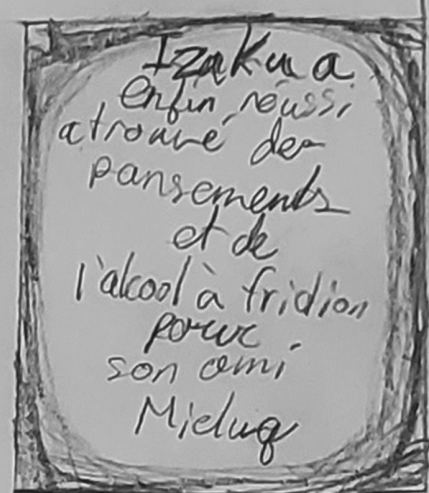 Izaku a
enfin réussi
a trouvé des
pansements
et de
l'alcool à fridion
pour
son ami
Mieluq